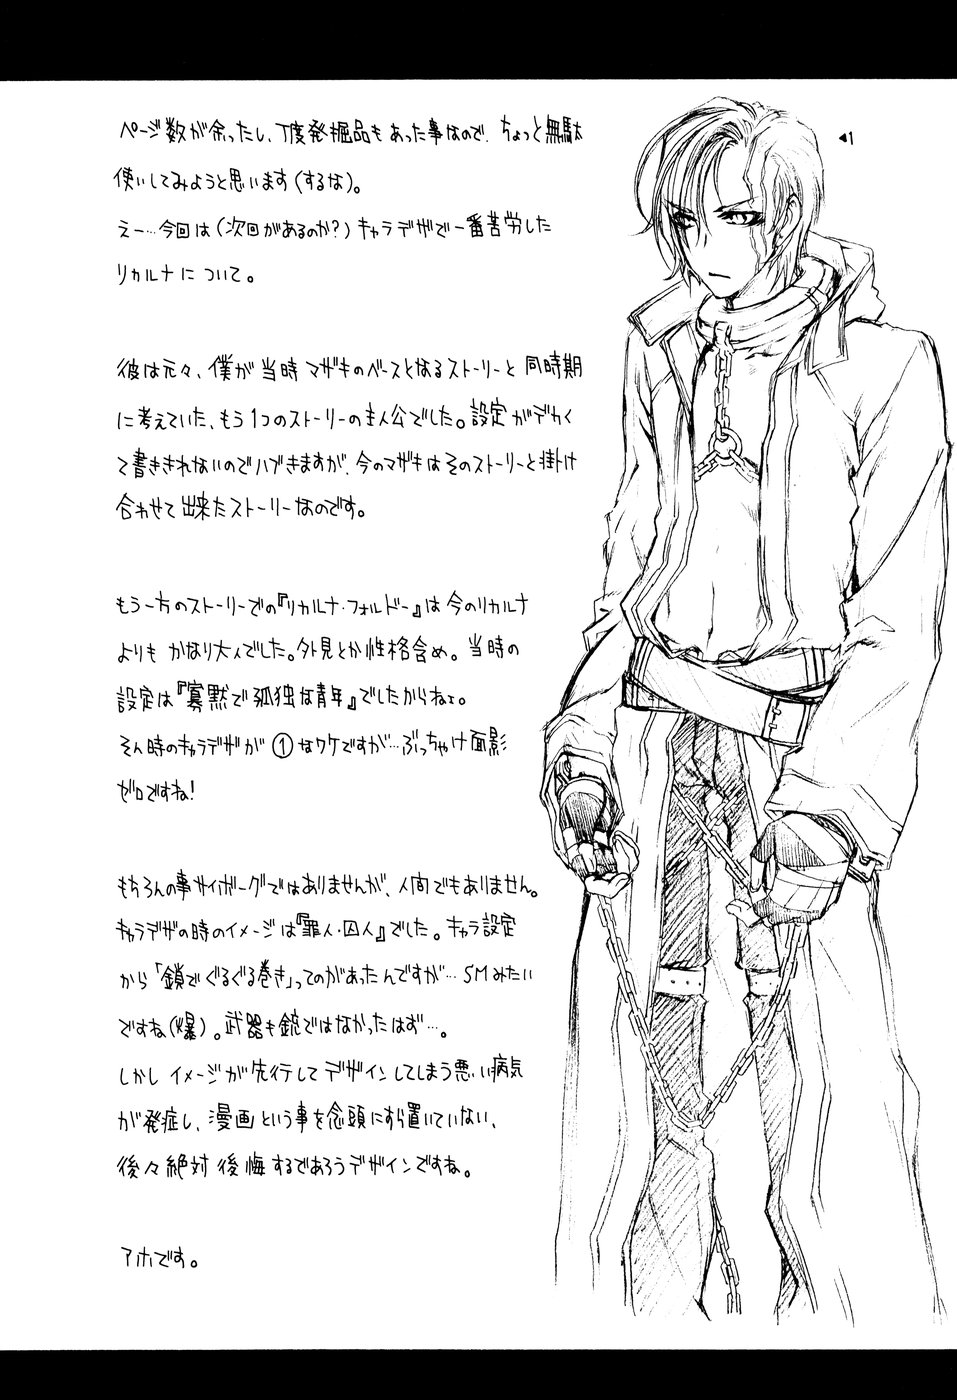 ページ数が余ったし、丁度発掘品もあった事なので、ちょっと無駄
使いしてみようと思います(するな)。
えー…今回は(次回があるのか?)キャラデザで一番苦労した
リカルナについて。
彼は元々、僕が当時マザキのベースとなるストーリーと同時期
に考えていた、もう1つのストーリーの主人公でした。設定がデカく
て書ききれないのでハブきますが、今のマザキはそのストーリーと掛け
合わせて出来たストーリーなのです。
もう一方のストーリーでの『リカルナ・フォルドー』は今のリカルナ
よりもかなり大人でした。外見とか性格含め。当時の
設定は『寡黙で孤独な青年』でしたからねェ。
そん時のキャラデザが①なワケですが…ぶっちゃけ面影
ゼロですね!
もちろんの事サイボーグではありませんが、人間でもありません。
キャラデザの時のイメージは『罪人・囚人』でした。キャラ設定
から「鎖でぐるぐる巻き」ってのがあったんですが…SMみたい
ですね(爆)。武器も銃ではなかったはず…。
しかしイメージが先行してデザインしてしまう悪い病気
が発症し、漫画という事を念頭にすら置いていない、
後々絶対後悔するであろうデザインですね。
アホです。
◀1